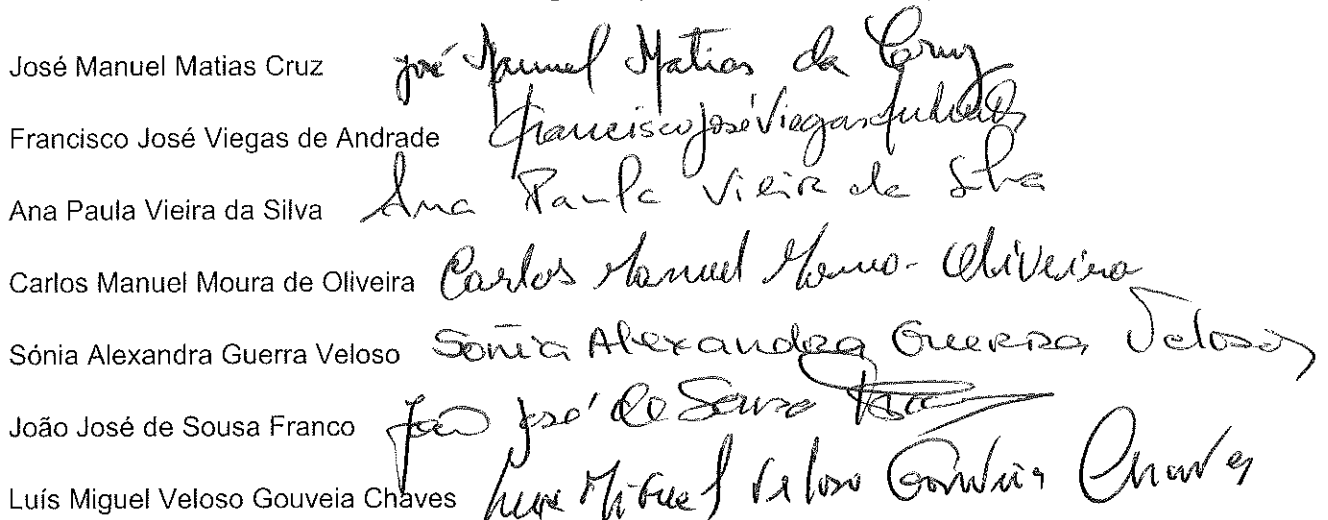 José Manuel Matias Cruz José Manuel Matias da Cruz
Francisco José Viegas de Andrade Francisco José Viegas Andrade
Ana Paula Vieira da Silva Ana Paula Vieira da Silva
Carlos Manuel Moura de Oliveira Carlos Manuel Moura Oliveira
Sónia Alexandra Guerra Veloso Sónia Alexandra Guerra Veloso
João José de Sousa Franco João José de Sousa
Luís Miguel Veloso Gouveia Chaves Luís Miguel Veloso Gouveia Chaves